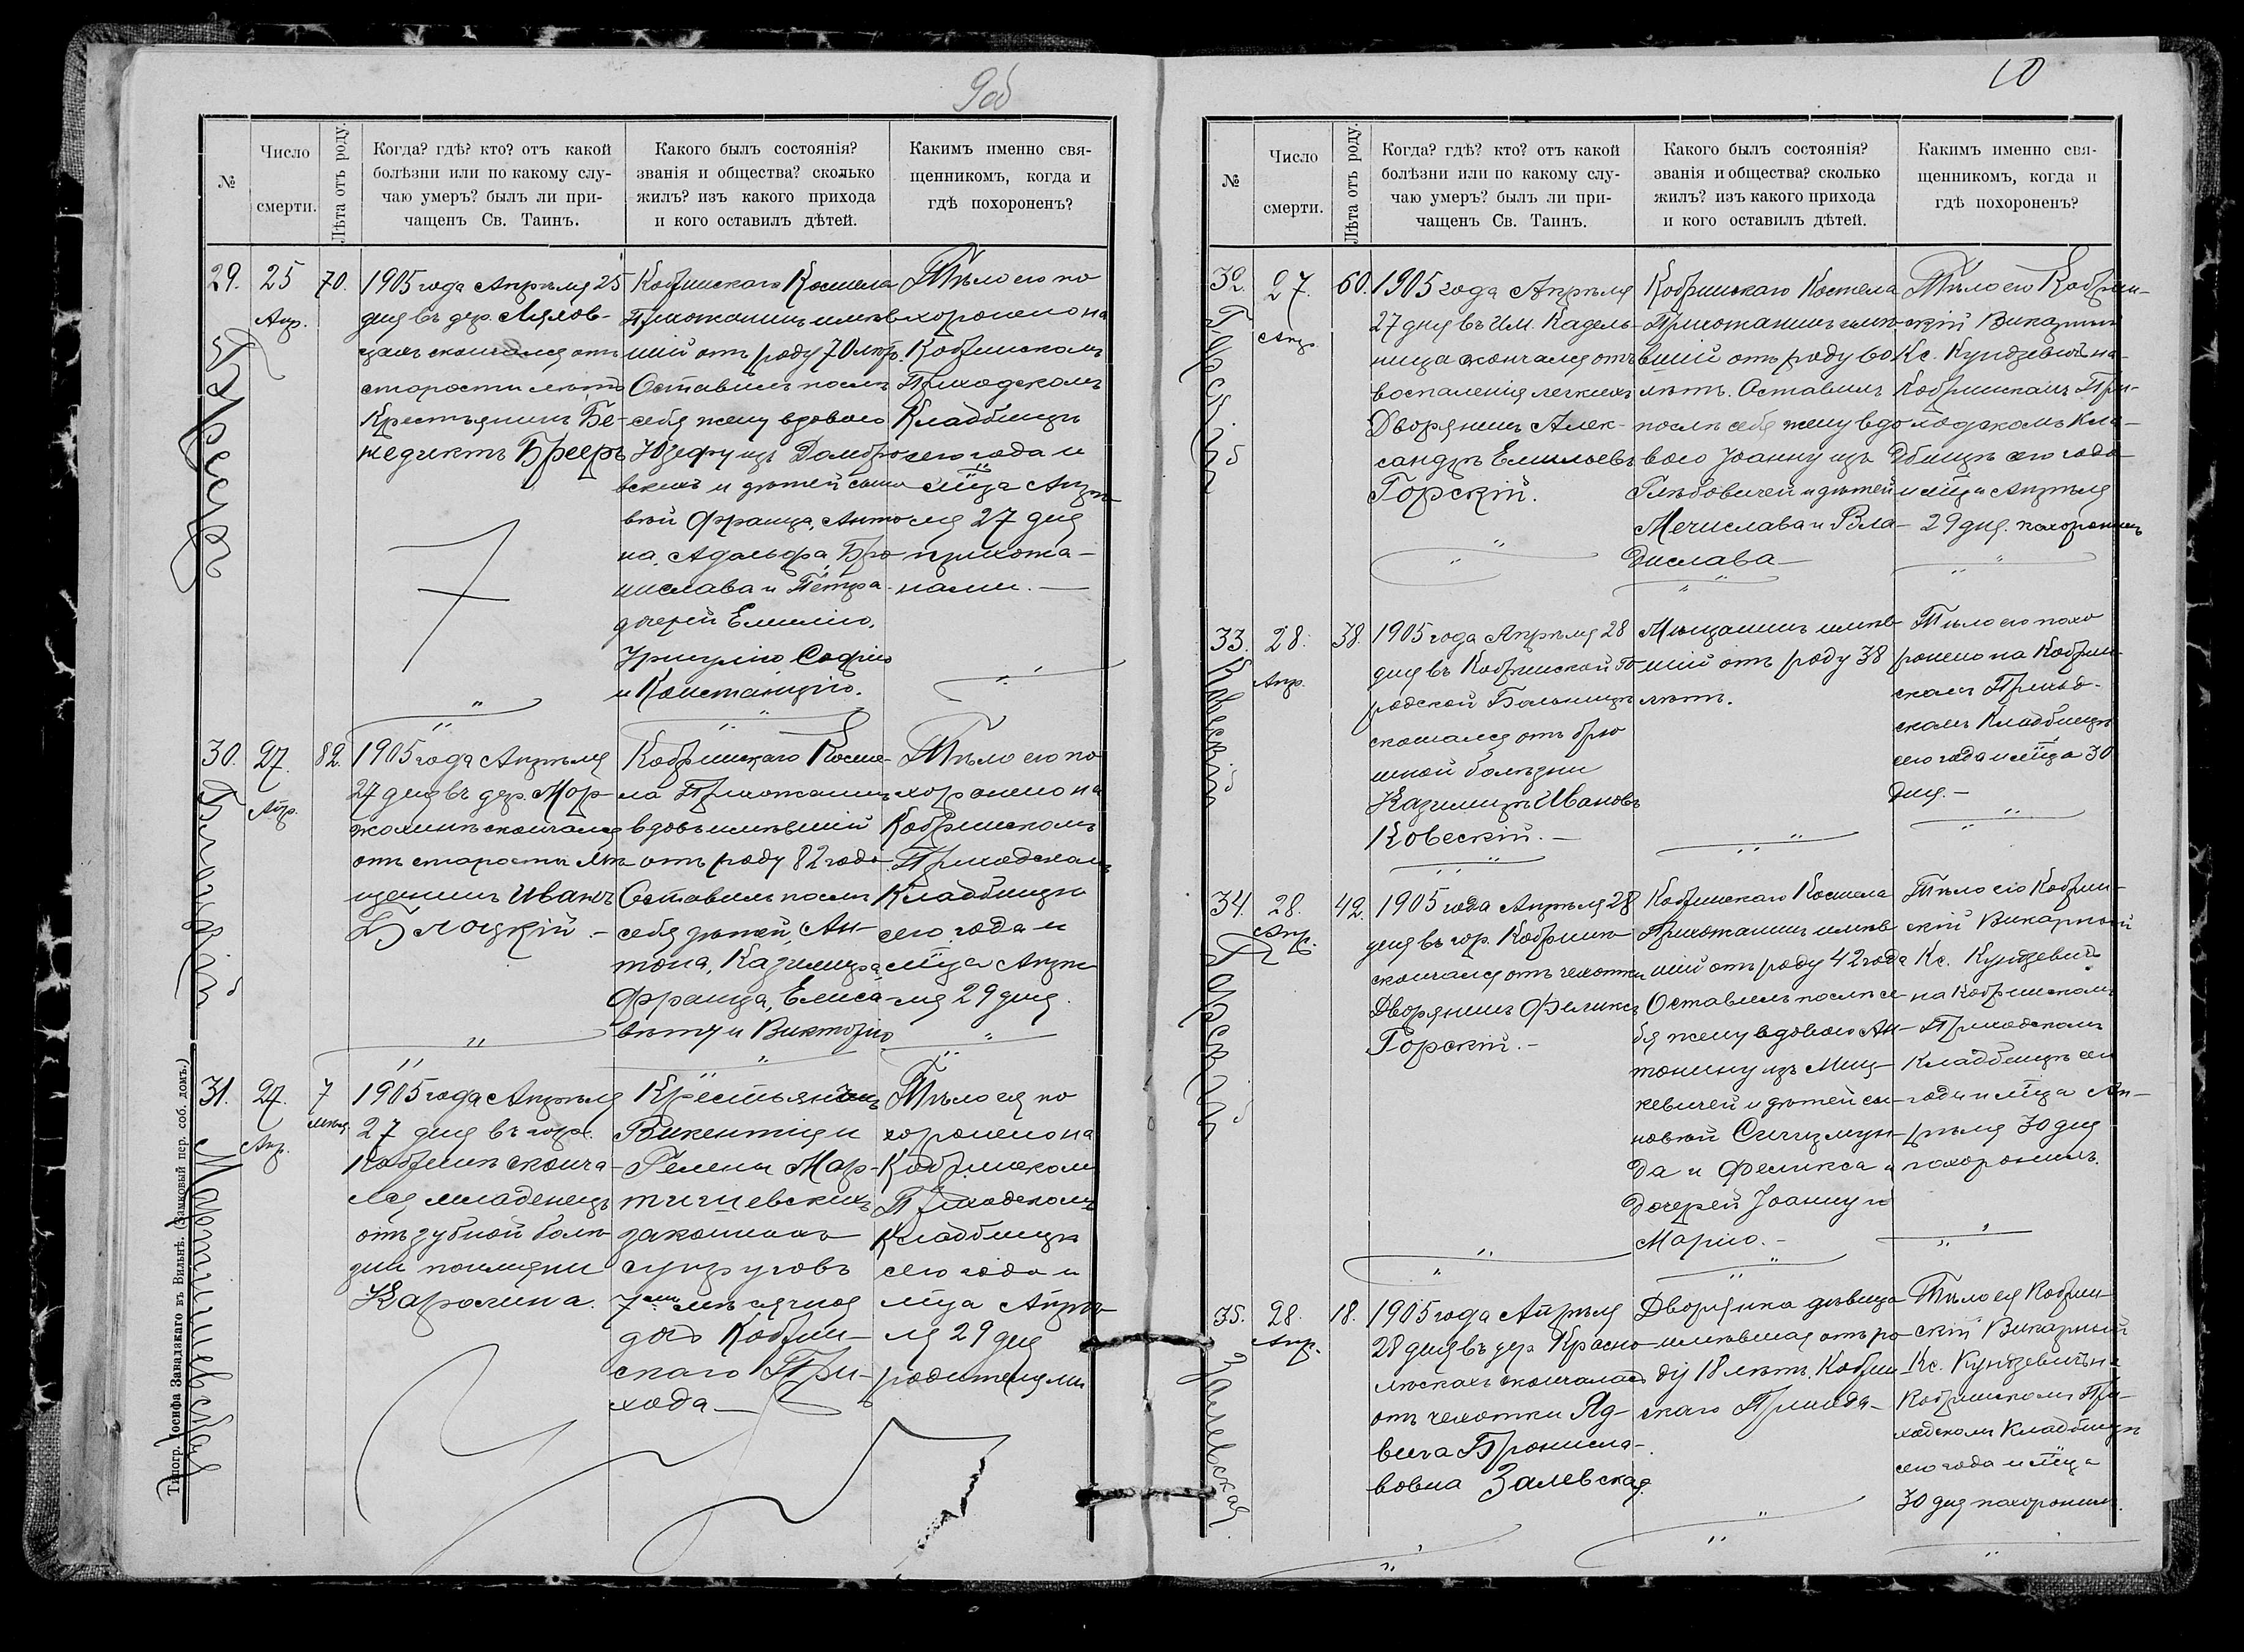 9об
№
Число
смерти.
Лѣта отъ роду.
Когда? гдѣ? кто? отъ какой
болѣзни или по какому слу-
чаю умеръ? былъ ли при-
чащенъ Св. Таинъ.
Какого былъ состоянія?
званія и общества? сколько
жилъ? изъ какого прихода
и кого оставилъ дѣтей.
Какимъ именно свя-
щенникомъ, когда и
гдѣ похороненъ?
29.
25
Апр.
70.
1905 года Апрѣля 25
дня въ дер. Лялов-
цахъ скончался отъ
старости лѣтъ
Крестьянинъ Бе-
недиктъ Брееръ
Кобринскаго Костела
Прихожанинъ имѣв
шій отъ роду 70 лѣтъ.
Оставилъ послѣ
себя жену вдовою
Юзефу изъ Домбро
вскихъ и дѣтей сыно
вей Франца, Анто
на, Адольфа, Бро
нислава и Петра
дочерей Емилію,
Уршулю Софію
и Констанцію.
Тѣло его по
хоронено на
Кобринскомъ
Приходскомъ
Кладбищѣ
сего года и
мца Апрѣ
ля 27 дня
прихожа-
нами.—
30.
27.
Апр.
82.
Блоцкій
1905 года Апрѣля
27 дня въ дер. Мор-
жолинѣ скончался
отъ старости Мѣ
щанинъ Иванъ
Блоцкій.-
Кобринскаго Косте-
ла Прихожанинъ
вдовъ имѣвшій
отъ роду 82 года
Оставилъ послѣ
себя дѣтей, Ан-
тона, Казимира
Франца, Елиса-
вету и Викторію
Тѣло его по
хоронено на
Кобринскомъ
Приходскомъ
Кладбищѣ
сего года и
мца Апрѣ
ля 29 дня.
31.
27.
Апр.
7
мѣсяц.
Мартишевская
1905 года Апрѣля
27 дня въ гор.
Кобринѣ сконча-
лся младенецъ
отъ зубной болѣ
зни
Каролина.
Крестьянинъ
Викентія и
Гелены Мар-
тишевскихъ
законныхъ
супруговъ
7ми мѣсячная
дочь Кобрин-
скаго При-
хода—
Тѣло ея по
хоронено на
Кобринскомъ
Приходскомъ
Кладбищѣ
сего года и
мца Апрѣ-
ля 29 дня
родителями
Типогр. Іосифа Завадзкаго въ Вильнѣ. (Замковый пер. соб. домъ.)
10
№
Число
смерти.
Лѣта отъ роду.
Когда? гдѣ? кто? отъ какой
болѣзни или по какому слу-
чаю умеръ? былъ ли при-
чащенъ Св. Таинъ.
Какого былъ состоянія?
званія и общества? сколько
жилъ? изъ какого прихода
и кого оставилъ дѣтей.
Какимъ именно свя-
щенникомъ, когда и
гдѣ похороненъ?
32.
27.
Апр.
60.
Горскій
1905 года Апрѣля
27 дня въ Им. Кадель-
ница скончался отъ
воспаленія легкихъ
Дворянинъ Алек-
сандръ Емильевъ
Горскій.
Кобринскаго Костела
Прихожанинъ имѣ-
вшій отъ роду 60
лѣтъ. Оставилъ
послѣ себя жену вдо
вою Іоанну изъ
Глѣбовичей и дѣтей
Мечислава и Вла-
дислава—
Тѣло его Кобрин-
скій Викарный
Кс. Кундзевичъ на
Кобринскомъ При-
ходскомъ Кла-
дбищѣ сего года
и мца Апрѣля
29 дня. похоронилъ
33.
28.
Апр.
38.
Ковескій
1905 года Апрѣля 28
дня въ Кобринской Го
родской Больницѣ
скончался отъ брю
шной болѣзни
Казимиръ Ивановъ
Ковескій.—
Мѣщанинъ имѣв
шій отъ роду 38
лѣтъ.
Тѣло его похо
ронено на Кобрин
скомъ Приход-
скомъ Кладбищѣ
сего года и мца 30
дня.—
34.
28.
Апр.
42.
Горскій
1905 года Апрѣля 28
дня въ гор. Кобринѣ
скончался отъ чахотки
Дворянинъ Феликсъ
Горскій.-
Кобринскаго Костела
Прихожанинъ имѣв
шій отъ роду 42 года
Оставилъ послѣ се
бя жену вдовою Ан-
тонину изъ Миц-
кевичей и дѣтей сы-
новей Сигизмун-
да и Феликса и
дочерей Іоанну и
Марію.-
Тѣло его Кобрин-
скій Викарный
Кс. Кундзевичъ
на Кобринскомъ
Приходскомъ
Кладбищѣ сего
года и мца Ап-
рѣля 30 дня
похоронилъ.
35.
28.
Апр.
18.
Залевская.
1905 года Апрѣля
28 дня въ дер. Красно
лѣскахъ скончалась
отъ чахотки Яд-
вига Брониcла-
вовна Залевская
Дворянка дѣвица
имѣвшая отъ ро-
ду 18 лѣтъ. Кобрин
скаго Прихода—
Тѣло ея Кобрин-
скій Викарный
Кс. Кундзевичъ на
Кобринскомъ При-
ходскомъ Кладбищѣ
сего года и мца
30 дня похоронилъ.